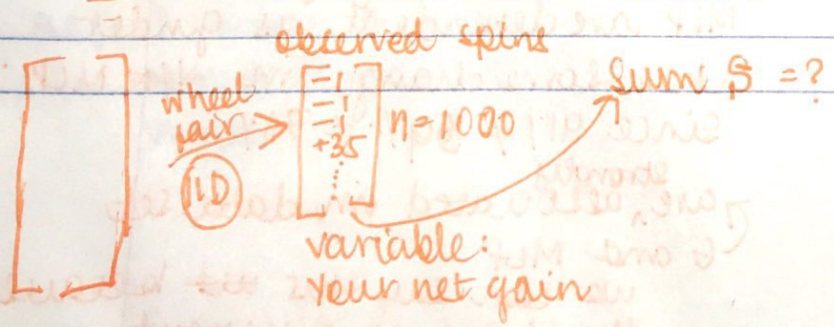 observed spins
wheel
fair
IID
-1
-1
-1
+35
n=1000
Sum S =?
variable:
Your net gain